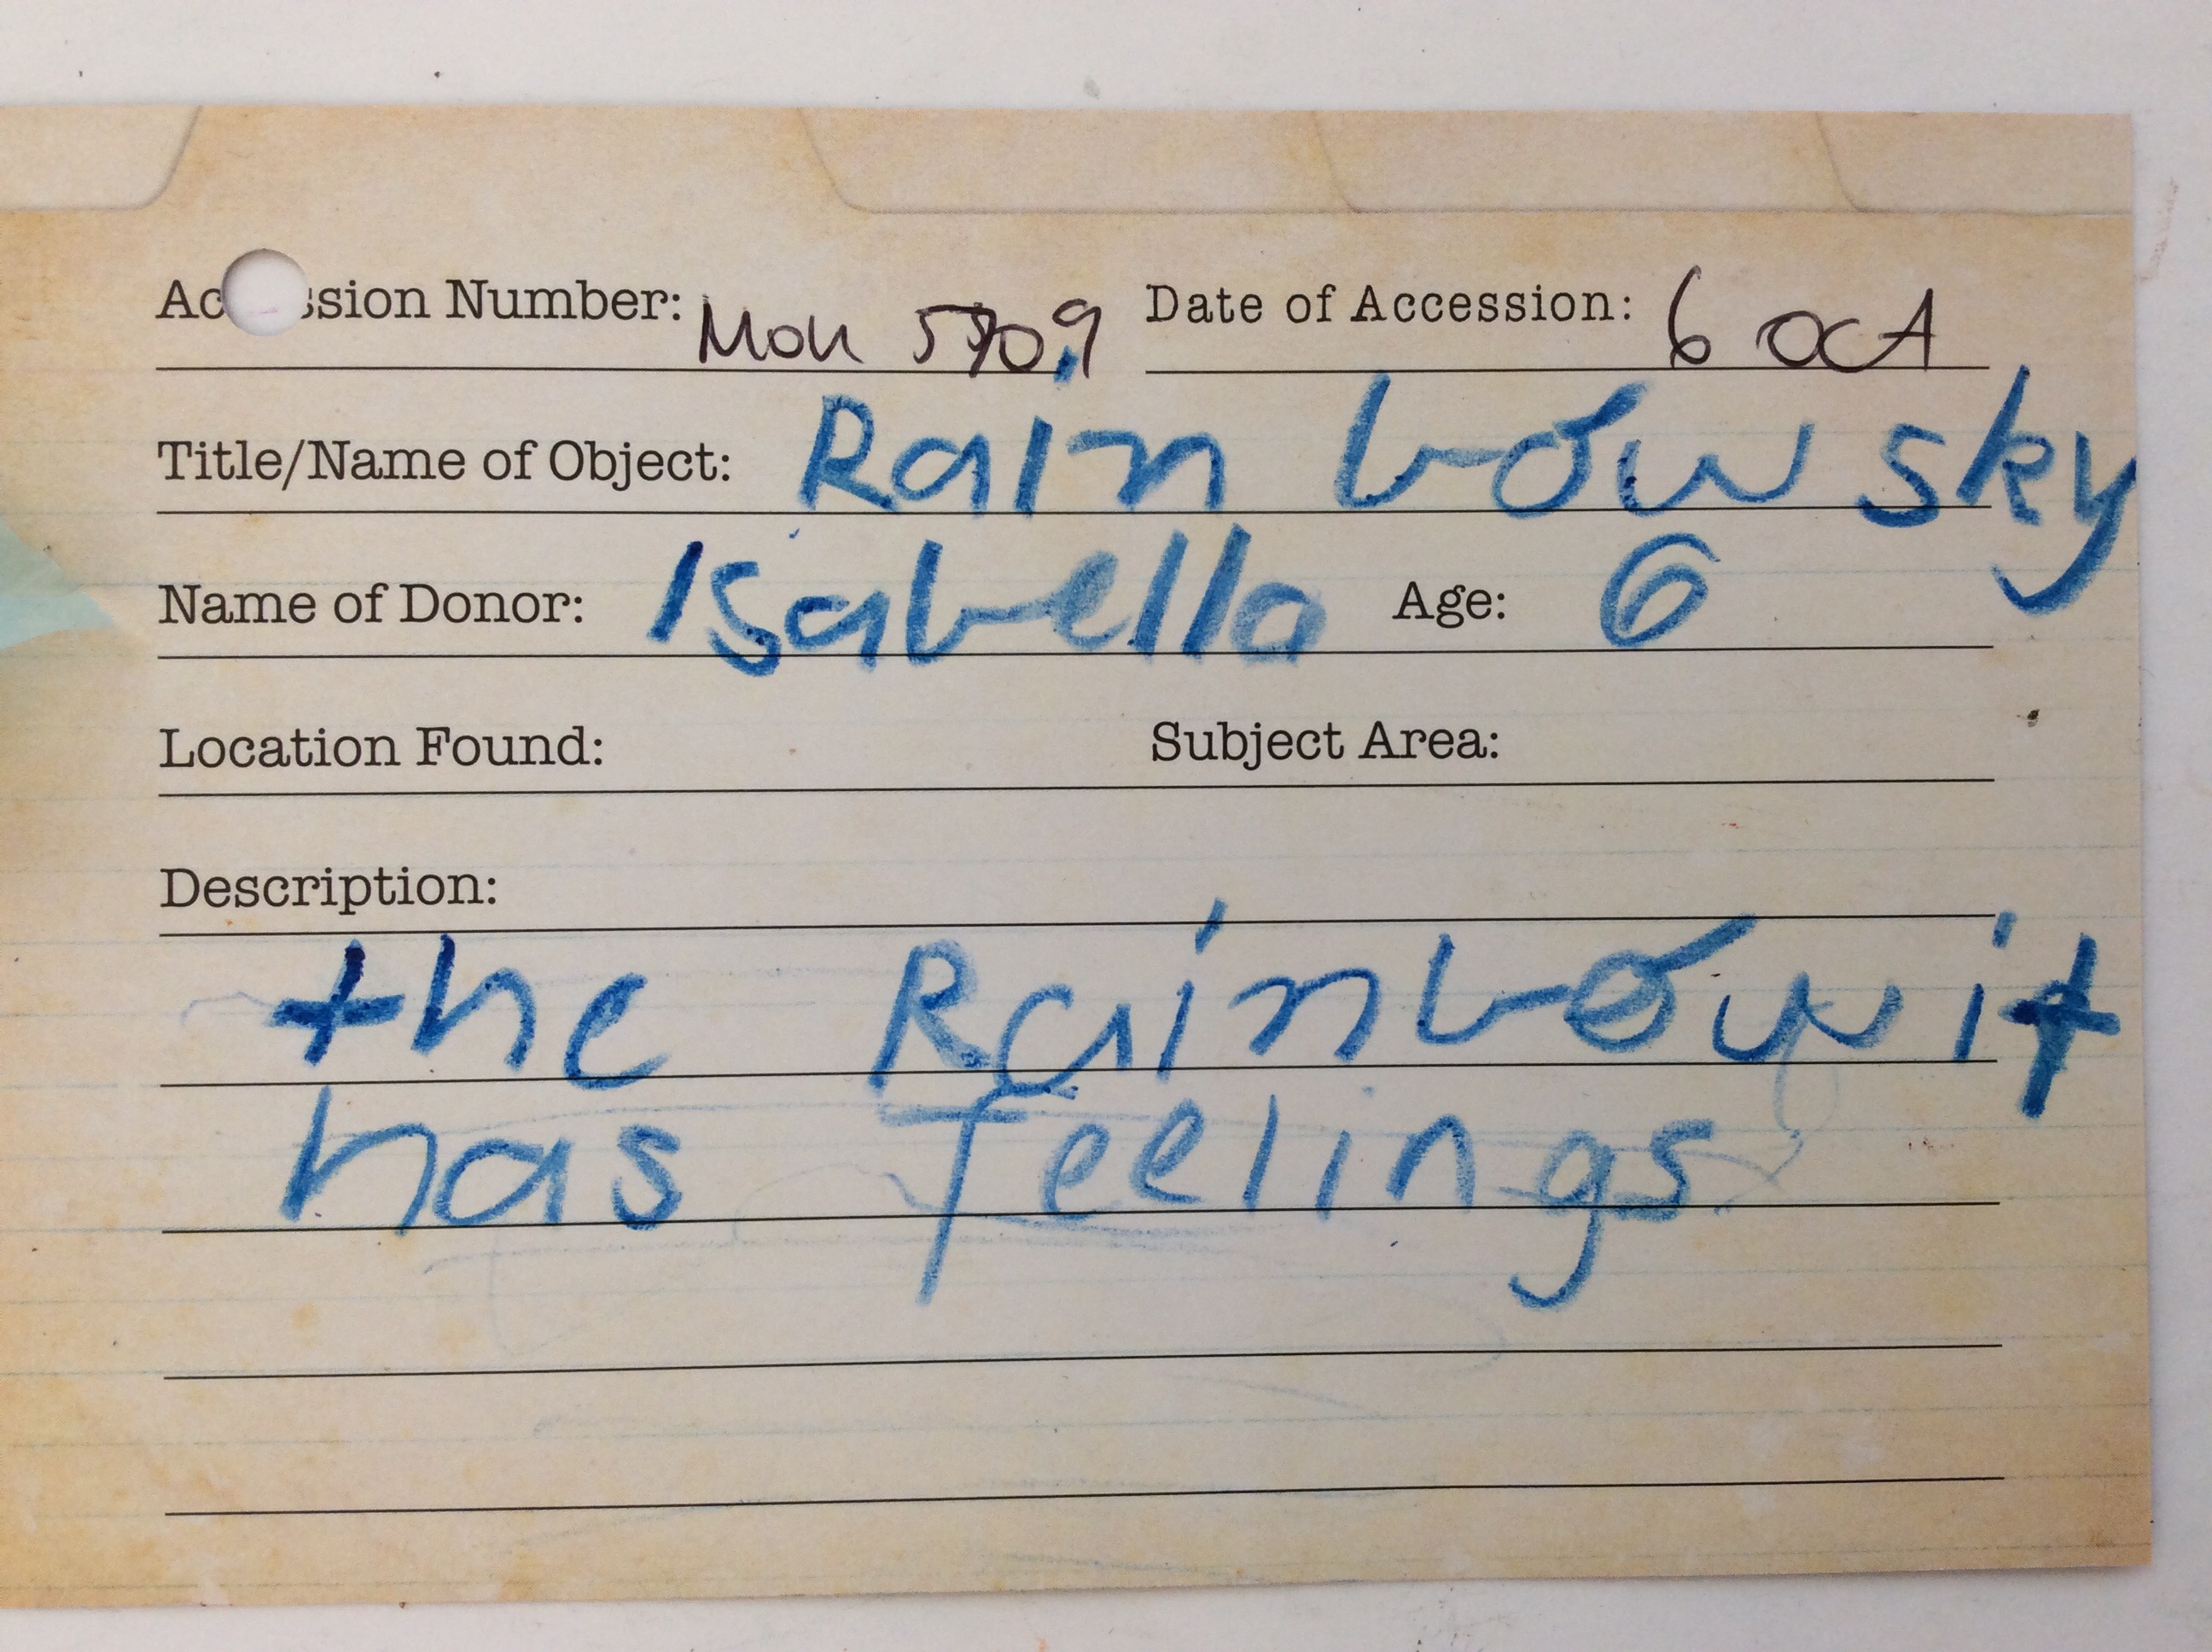 Accession Number: Mon Date of Accession: 6 Oct
Title/Name of Object: Rain bow sky
Name of Donor: Isabella Age: 6
Location Found: Subject Area:
Description:
the Rainbow it
has feelings